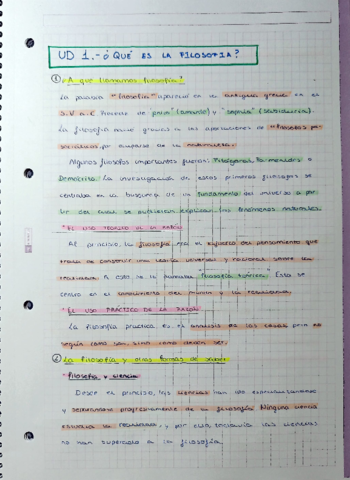 UD 1.- ¿QUÉ ES LA FILOSOFIA?
① ¿A que llamamos filosofía?
La palabra "filosofía" apareció en la antigua grecia en el
S. V a.C. Procede de "philo" (amante) y "sophia" (sabiduría).
La filosofía nació gracias a las aportaciones de "filósofos pre
socráticos", por ocuparse de la naturaleza.
Algunos filósofos importantes fueron: Pitágoras, Parmenides o
Demócrito. La investigación de estos primeros filósofos se
centraba en la busqueda de un fundamento del universo a par
tir del cual se pudieran explicar los fenómenos naturales.
*EL USO TEÓRICO DE LA RAZÓN
Al principio, la filosofía era el esfuerzo del pensamiento que
trata de construir una teoría universal y racional sobre la
realidad. A esto se le llamaba "filosofía teórica". Esta se
centra en el conocimiento del mundo y la realidad.
*EL USO PRACTICO DE LA RAZÓN
La filosofía practica es el analisis de las cosas pero no
según como son, sino como deben ser.
② La Filosofía y otras formas de saber
*Filosofía y ciencia
Desde el principio, las ciencias han ido especializandose
y separandose progresivamente de la filosofía. Ninguna ciencia
estudia la realidad, y por ello todavía las ciencias
no han superado a la filosofía.